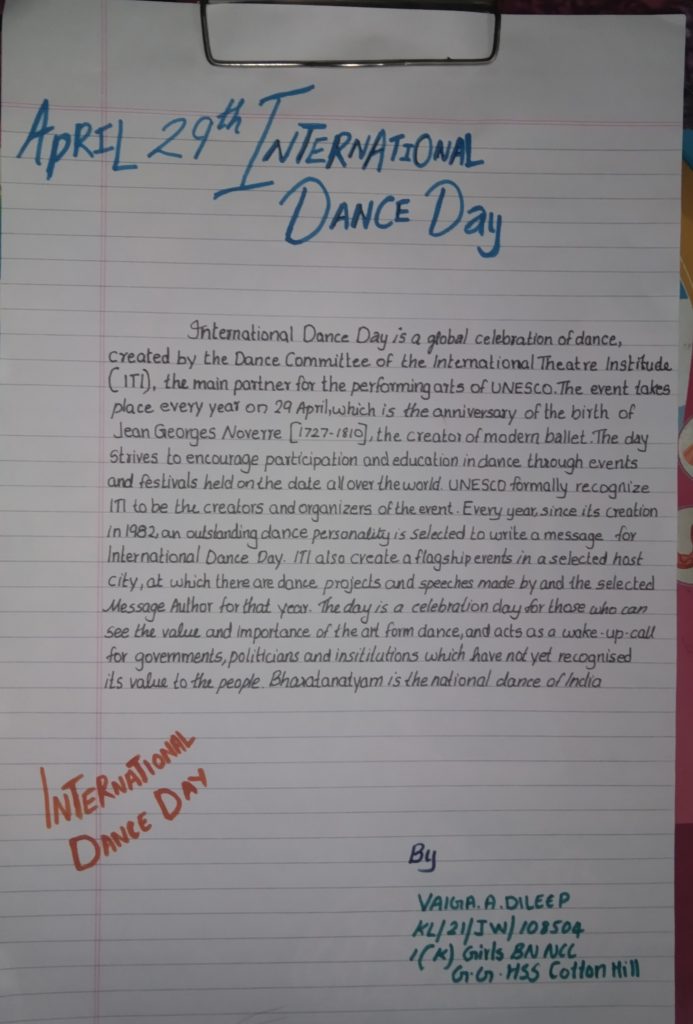 APRIL 29th INTERNATIONAL
DANCE Day
International Dance Day is a global celebration of dance,
created by the Dance Committee of the International Theatre Institude
(ITI), the main partner for the performing arts of UNESCO. The event takes
place every year on 29 April, which is the anniversary of the birth of
Jean Georges Noverre [1727-1810], the creator of modern ballet. The day
strives to encourage participation and education in dance through events
and festivals held on the date all over the world. UNESCO formally recognize
ITI to be the creators and organizers of the event. Every year, since its creation
in 1982, an outstanding dance personality is selected to write a message for
International Dance Day. ITI also create a flagship events in a selected host
city, at which there are dance projects and speeches made by and the selected
Message Author for that year. The day is a celebration day for those who can
see the value and importance of the art form dance, and acts as a wake-up-call
for governments, politicians and insititutions which have not yet recognised
its value to the people. Bharatanatyam is the national dance of India
INTERNATIONAL
DANCE DAY
By
VAIGA.A.DILEEP
KL/21/JW/108504
1(K) Girls BN NCC
G.G.HSS Cotton Hill